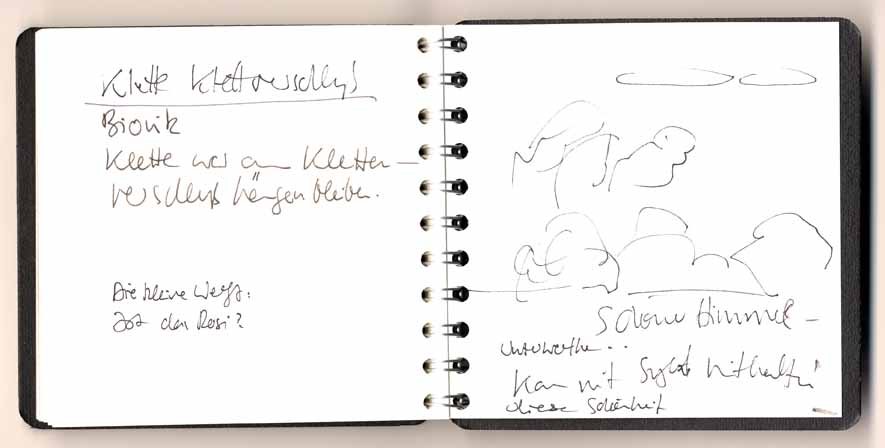 Klette Klettverschluß
Bionik
Klette war am Kletten-
verschluß hängen bleiben.
Die kleine Werft:
Ist den Rosi?
Schöner Himmel -
Kann mit Sylt mithalten
diese Schönheit